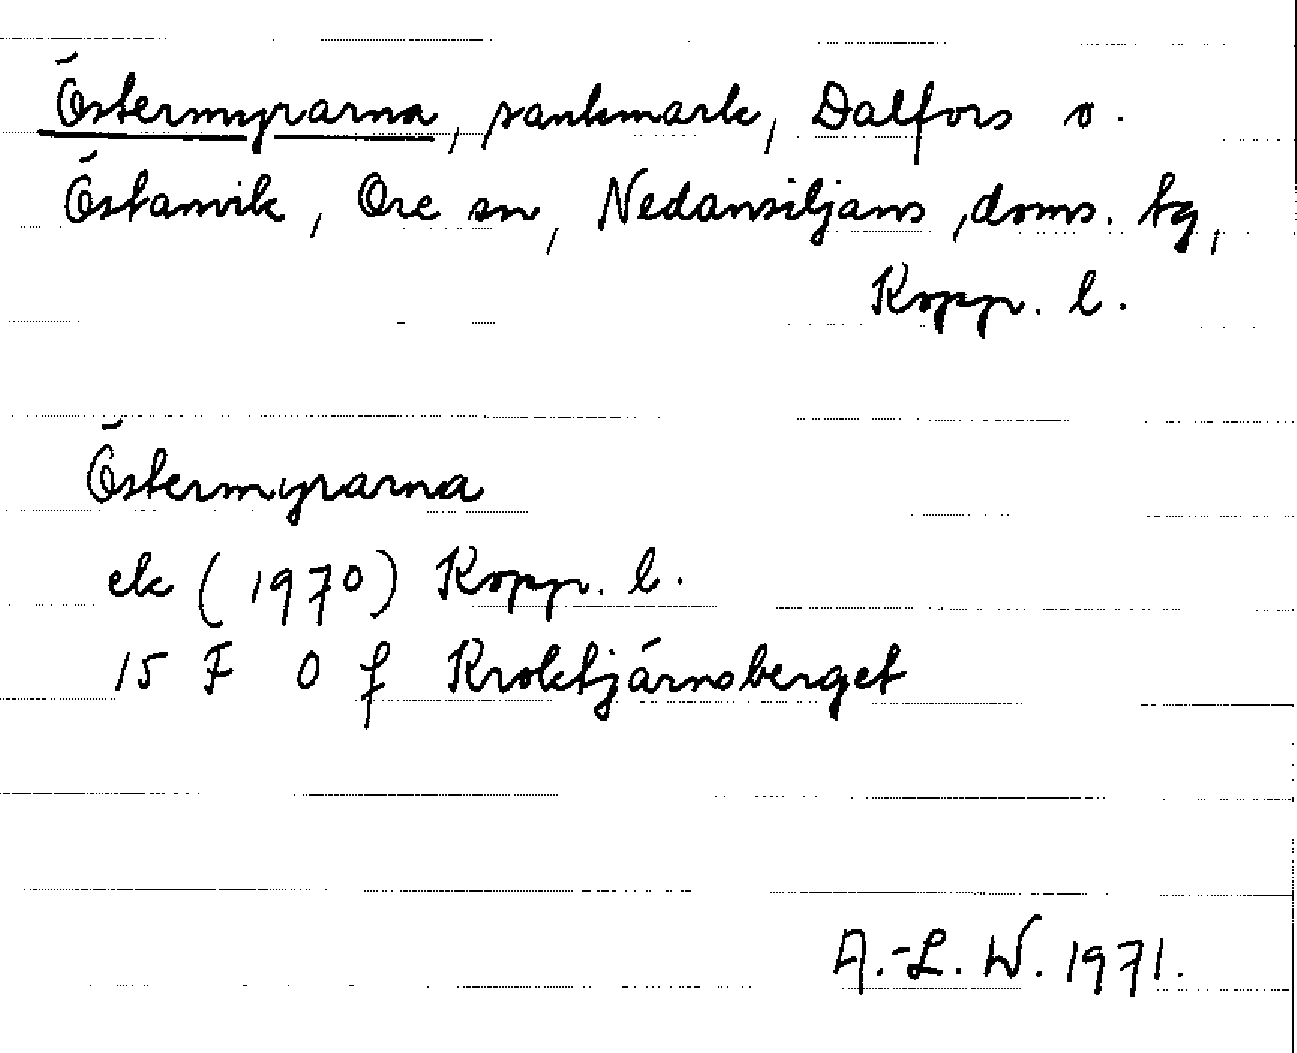 Östermyrarna, sankmark, Dalfors o.
Östanvik, Ore sn, Nedansiljans doms. tg,
Kopp. l.
Östermyrarna
ek (1970) Kopp. l.
15 F 0 f Kroktjärnsberget
A.-L. W. 1971.